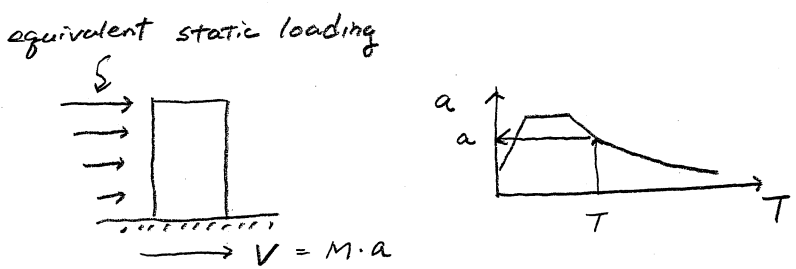 equivalent static loading
a
a
T
T
V = M·a